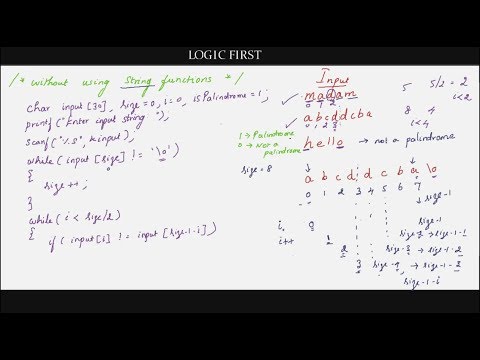 LOGIC FIRST
/* without using String functions */
char input[30], size=0, i=0, isPalindrome=1;
printf("Enter input string ");
scanf("%s", &input);
while (input[size] != '\0')
{
size++;
}
while(i < size/2)
{ if( input[i] != input[size-1-i])
Input
madam
0 1 2
5 5/2 = 2
i<2
abcddcba
0 1 2 3
8 4
i<4
1 → Palindrome
0 → Not a
palindrome
hello → not a palindrome
size=8
a b c d d c b a \0
0 1 2 3 4 5 6 7
size-1
i, 0 size-1
i++ 1 size-2 → size-1-1
2 size-3 → size-1-2
3 size-4, → size-1-3
size-1-i